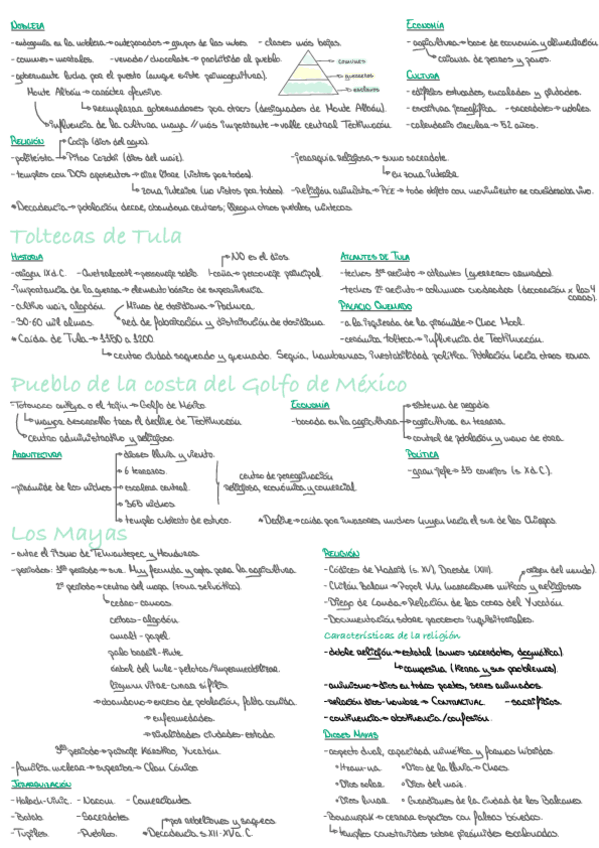 NOBLEZA
-endogamia en la nobleza→antepasados→grupos de las nubes. -clases más bajas.
-comunes=mortales. -venado/chocolate→prohibido al pueblo.
-gobernante lucha por el puesto (aunque existe primogenitura).
Monte Albán→carácter ofensivo.
→reemplazan gobernadores por otros (designados de Monte Albán).
→influencia de la cultura maya // más importante→valle central Teotihuacán
→comunes
→guerreros
→esclavos
ECONOMÍA
-agricultura→base de economía y alimentación
→crianza de perros y pavos.
CULTURA
-edificios estucados, encalados y pintados.
-escritura jeroglífica -sacerdotes→nobles.
-calendario circular→52 años.
RELIGIÓN
→Cocijo (dios del agua).
-politeísta→Pitao Cozobi (dios del maíz).
-templos con DOS aposentos→aire libre (vistos por todos).
→zona interior (no vistos por todos).
-jerarquía religiosa→sumo sacerdote.
→en zona interior.
-Religión animista→PEE→todo objeto con movimiento se consideraba vivo.
*Decadencia→población decae, abandona centros; llegan otros pueblos, mixtecas.
Toltecas de Tula
HISTORIA
→NO es el dios
-origen IX d.C. -Quetzalcoatl→personaje sabio 1-caña→personaje principal
-importancia de la guerra→elemento básico de supervivencia
-cultivo maíz, algodón Minas de obsidiana→Pachuca
-30-60 mil almas. →red de fabricación y distribución de obsidiana
*Caída de Tula→1150 a 1200
→centro ciudad saqueado y quemado. Sequía, hambrunas, inestabilidad política. Población hacia otras zonas
ATLANTES DE TULA
-techos 1er recinto→atlantes (guerreros armados).
-techos 2º recinto→columnas cuadradas (decoración x las 4 caras).
PALACIO QUEMADO
-a la izquierda de la pirámide→Chac Mool.
-cerámica tolteca→influencia de Teotihuacán.
Pueblo de la costa del Golfo de México
-Totonaco antigua o el tajín→Golfo de México.
→mayor desarrollo tras el declive de Teotihuacán
→centro administrativo y religioso.
ECONOMÍA
-basada en la agricultura
→sistema de regadío
→agricultura en terraza
→control de población y mano de obra.
ARQUITECTURA
-pirámide de los nichos
→dioses lluvia y viento.
→6 terrazas.
→escalera central
→365 nichos
→templo cubierto de estuco.
centro de peregrinación
religiosa, económica y comercial
POLÍTICA
-gran jefe→15 consejos (s. X d.C.).
*Declive→caída por invasores, muchos huyen hacia el sur de las Chiapas.
Los Mayas
-entre el Itsmo de Tehuantepec y Honduras.
-periodos: 1er periodo→sur. Muy fecunda y apta para la agricultura
2º periodo→centro del maya (zona selvática).
→cedro-canoas.
ceibas-algodón
amatl-papel
palo brasil-tinte
árbol del hule-pelotas/impermeabilizar.
lignum vitae-curar sífilis.
→abandono→exceso de población, falta comida
→enfermedades.
→rivalidades ciudades-estado.
3er periodo→paisaje kárstico, Yucatán.
-familia nuclear→superior→Clan Cónico
JERARQUIZACIÓN
-Halach-Uinic. -Nacom -Comerciantes
-Batab -Sacerdotes →por rebeliones y saqueos
-Tupiles. -Pueblos. *Decadencia s.XII-XV d.C.
RELIGIÓN
-Códices de Madrid (s. XV), Dresde (XIII). →origen del mundo).
-Chilán Balam→Popol Vuh (narraciones míticas y religiosas
-Diego de Landa→Relación de las cosas del Yucatán.
-Documentación sobre procesos inquisitoriales.
Características de la religión
-doble religión→estatal (sumos sacerdotes, dogmática).
→campesina (tierra y sus problemas).
-animismo→dios en todas partes, seres animados.
-relación dios-hombre→CONTRACTUAL -sacrificios.
-continencia→abstinencia/confesión.
DIOSES MAYAS
-aspecto dual, capacidad mimética y formas híbridas
*Itzam-na. *Dios de la lluvia→Chacs.
*Dios solar. *Dios del maíz.
*Dios lunar *Guardianes de la ciudad de los Balcanes
-Bonampak→cerrar espacios con falsas bóvedas.
→templos construidos sobre pirámides escalonadas.